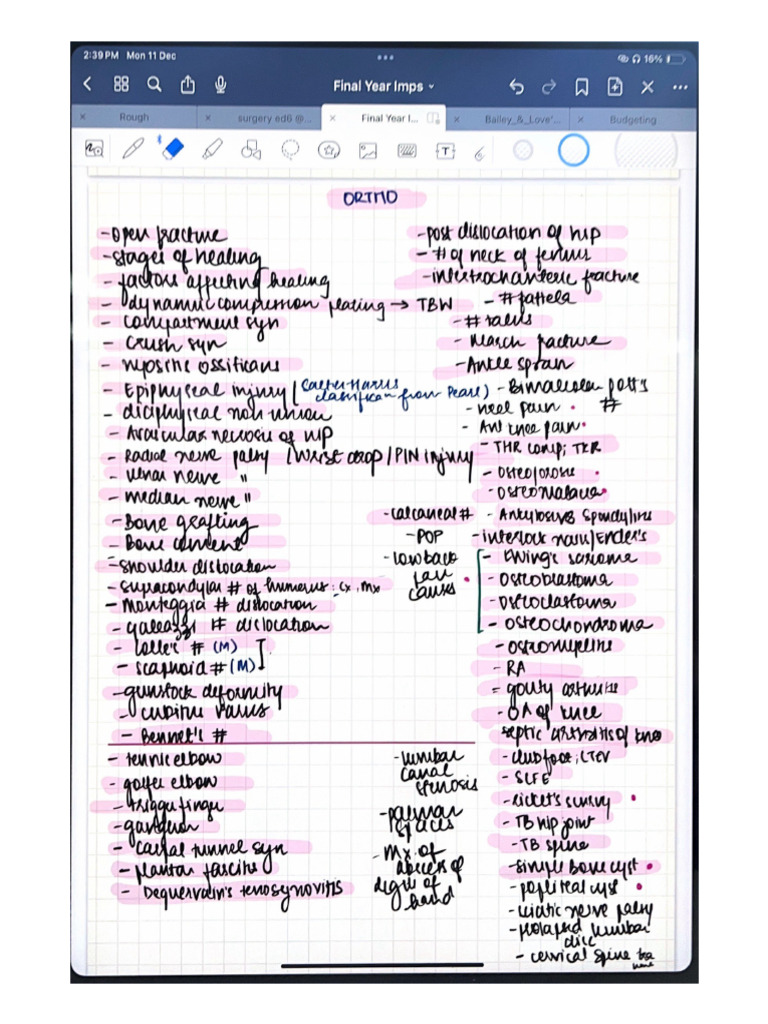 2:39 PM Mon 11 Dec
16%
Final Year Imps
Rough
surgery ed6 @...
Final Year I...
Bailey_&_Love'...
Budgeting
ORTHO
- open fracture
- stages of healing
- factors affecting healing
- dynamic compression plating → TBW
- compartment syn
- crush syn
- myositis ossificans
- Epiphyseal injury (Salter Harris classification from Pearl)
- diaphyseal non union
- Avascular necrosis of hip
- Radial nerve palsy / Wrist drop / PIN injury
- ulnar nerve "
- median nerve "
- Bone grafting
- Bone cement
- shoulder dislocation
- supracondylar # of humerus: cx, mx
- monteggia # dislocation
- galeazzi # dislocation
- colle's # (M)
- scaphoid # (M)
- gunstock deformity
- cubitus varus
- Bennet's #
- tennis elbow
- golfer elbow
- trigger finger
- ganglion
- carpal tunnel syn
- plantar fascitis
- Dequervain's tenosynovitis
- calcaneal #
- POP
- low back
pain
causes
- lumbar
canal
stenosis
- palmar
spaces
- Mx of
abscess of
digit of
hand
- post dislocation of hip
- # of neck of femur
- intertrochanteric fracture
- # patella
- # talus
- March fracture
- Ankle sprain
- Bimalleolar pott's
#
- heel pain
- Ant knee pain
- THR comp; TKR
- osteoporosis
- osteomalacia
- Ankylosing Spondylitis
- interlock nail/Ender's
- Ewing's sarcoma
- osteoblastoma
- osteoclastoma
- osteochondroma
- osteomyelitis
- RA
= gouty arthritis
- OA of knee
septic arthritis of knee
- club foot; CTEV
- SCFE
- ricket's scurvy
- TB hip joint
- TB spine
- simple bone cyst
- popliteal cyst
- sciatic nerve palsy
- prolapsed lumbar
disc
- cervical spine tra